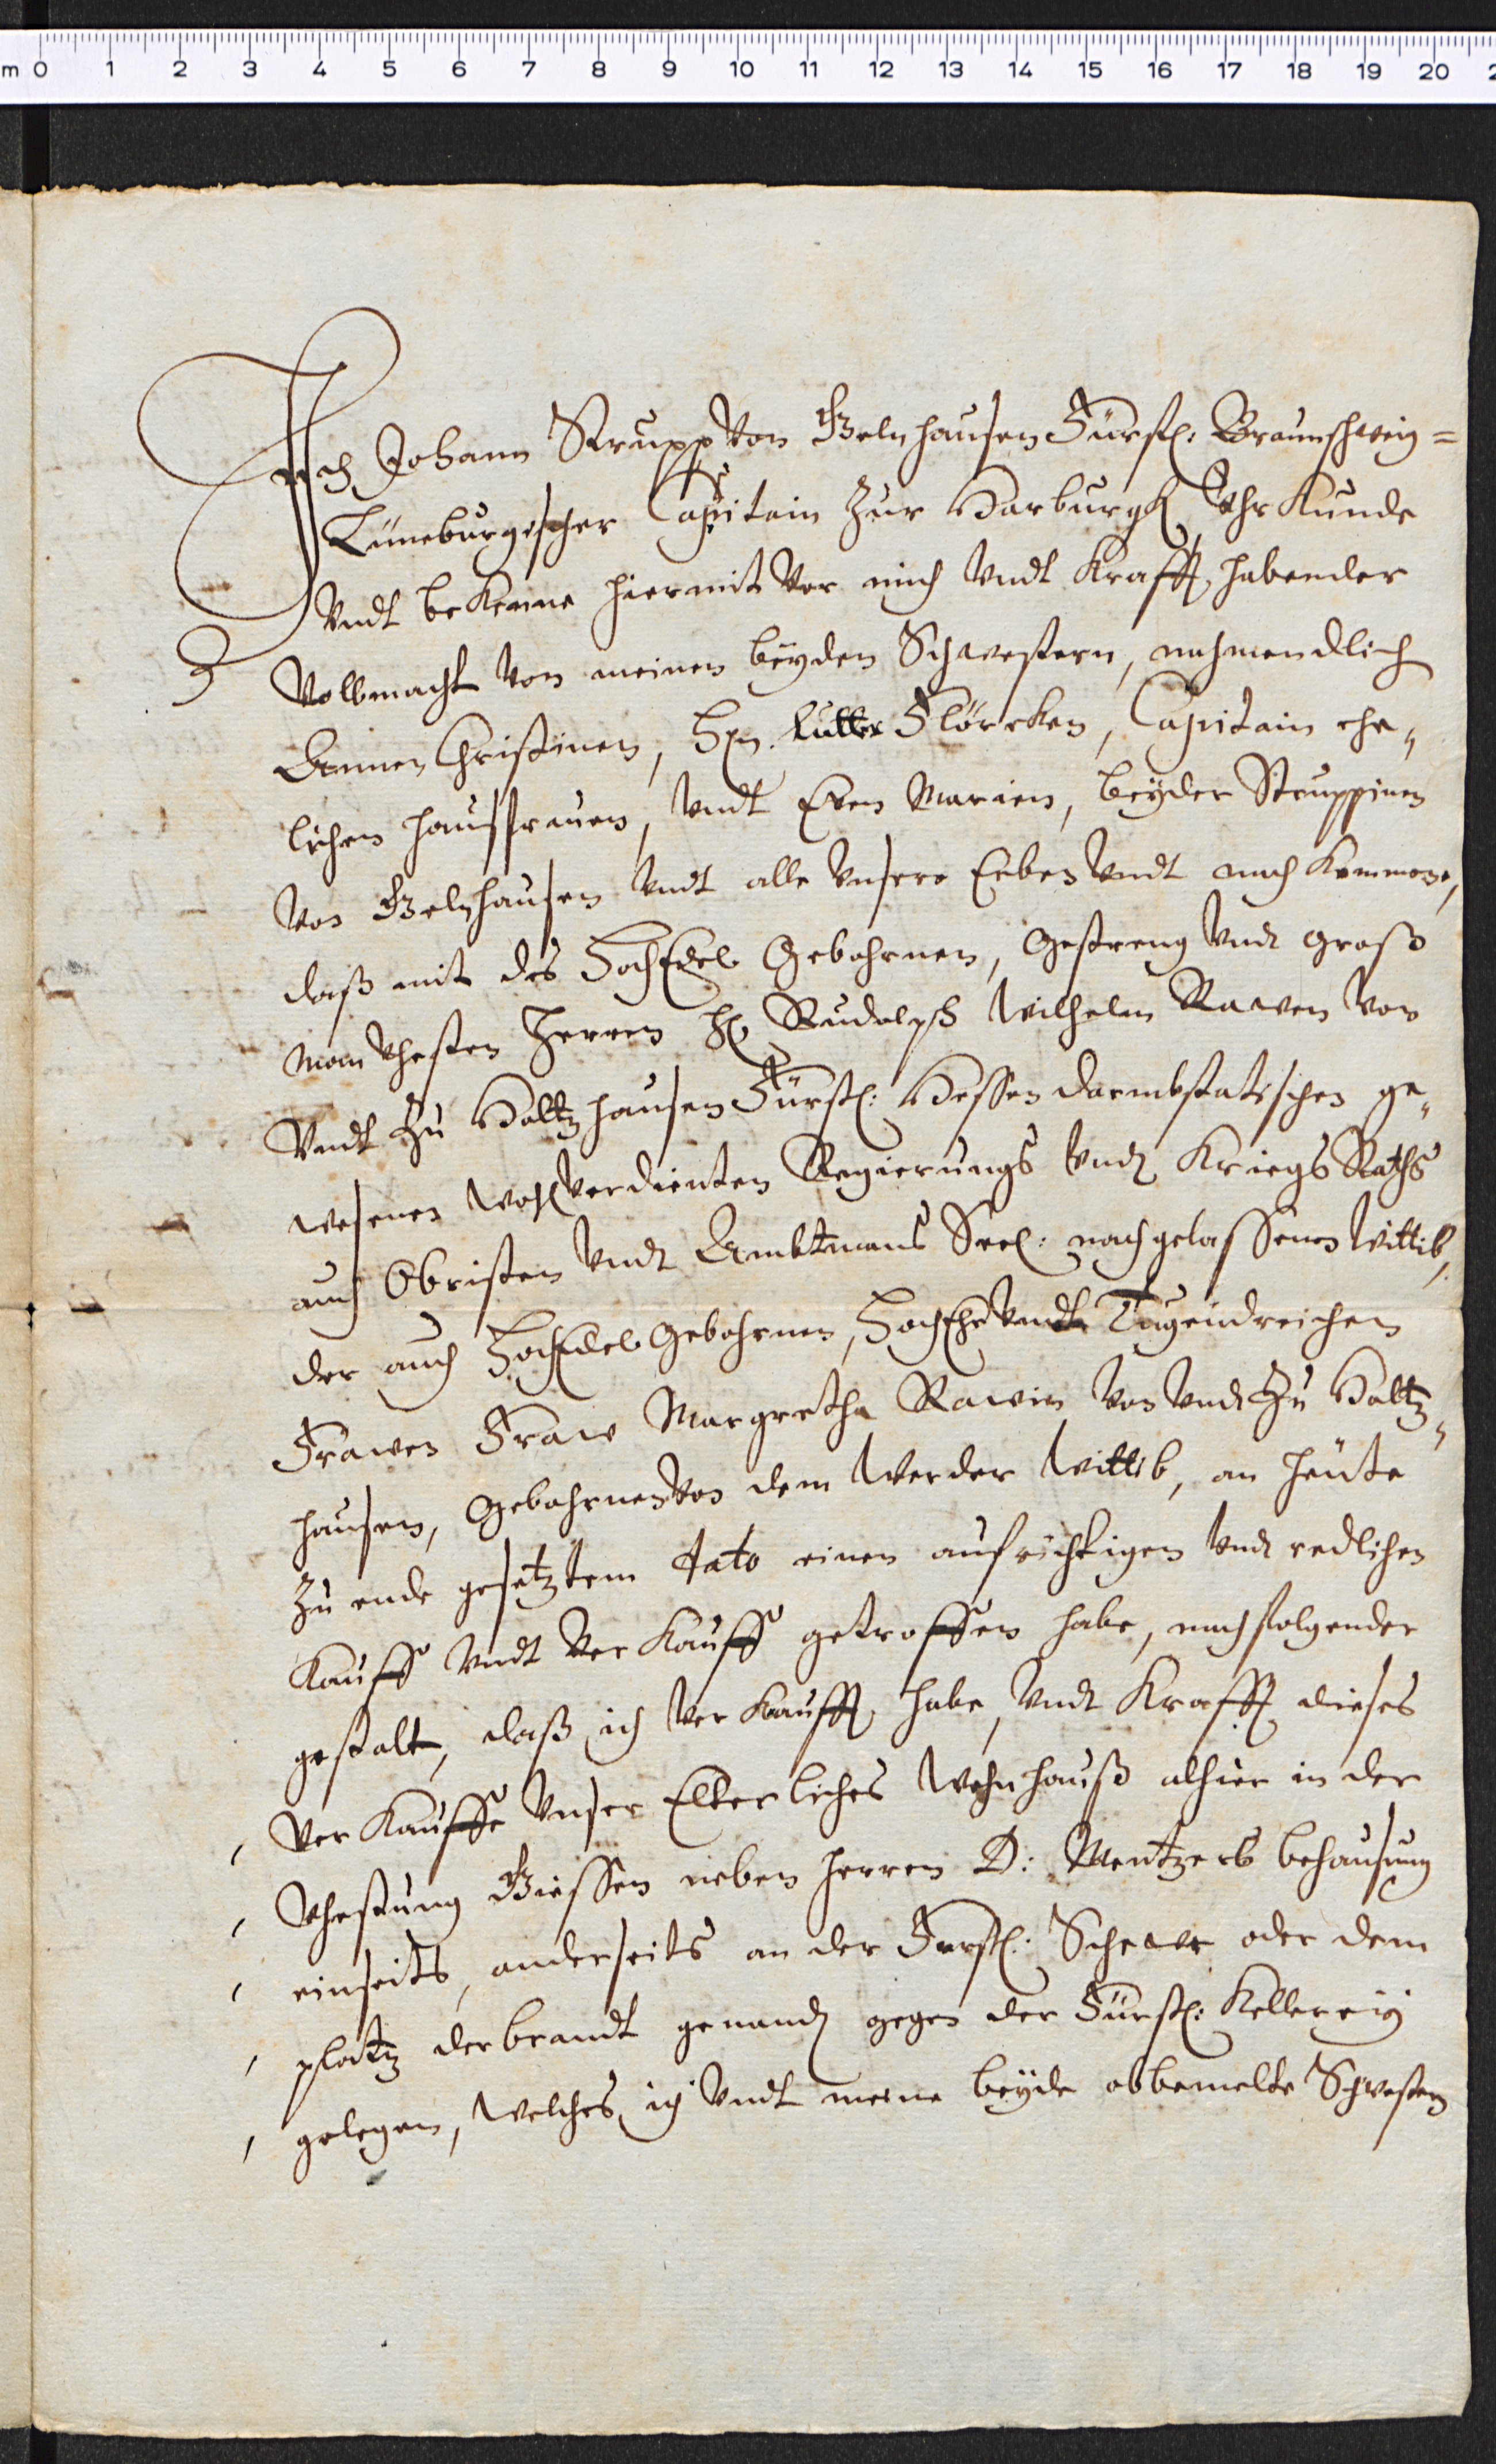 m 0 1 2 3 4 5 6 7 8 9 10 11 12 13 14 15 16 17 18 19 20
Ich Johann Strupp von Gelnhausen Fürstl: Braunschweig=
Lüneburgischer Capitain zur Harburgk Vhrkunde
Vndt bekenne hiermit vor mich vndt krafft habender
Vollmacht von meinen beyden Schwestern, nahmendlich
Annen Christinen, Hrn. Flörcken, Capitain ehe„
lichen haußfrauen, vndt Even Marien, beyder Struppinen
von Gelnhausen vndt alle vnsere Erben vndt nachkommene,
daß mit des HochEdel Gebohrnen, Gestreng vndt Groß
Manvhesten Herren H: Rudolph Wilhelm Rawen von
Vndt zu Holtzhausen Fürstl: Hessen darmbstatischen ge„
wesenen wohlverdienten Regierungs vndt Kriegs Raths
auch Obristen vndt Ambtmans Seel: nachgelassenen Wittib,
der auch HochEdel Gebohrnen, HochEhr vndt Tugendreichen
Frawen Fraw Margretha Rawin von vndt zu Holtz„
hausen, Gebohrnen von dem Werder Wittib, an heute
zu ende gesetztem dato einen aufrichtigen vndt redlichen
Kauff vndt Verkauff getroffen habe, nachfolgender
gestalt, daß ich verkaufft habe, vndt krafft dieses
verkauffe vnser Elterliches Wohnhauß alhier in der
Vhestung Giessen neben herren D: Mentzers behausung
einseits, anderseits an der Furstl: Schewer oder dem
platz der brandt genandt gegen der Fürstl: Kellerey
gelegen, welches ich vndt meine beyde obbemelte Schwestern